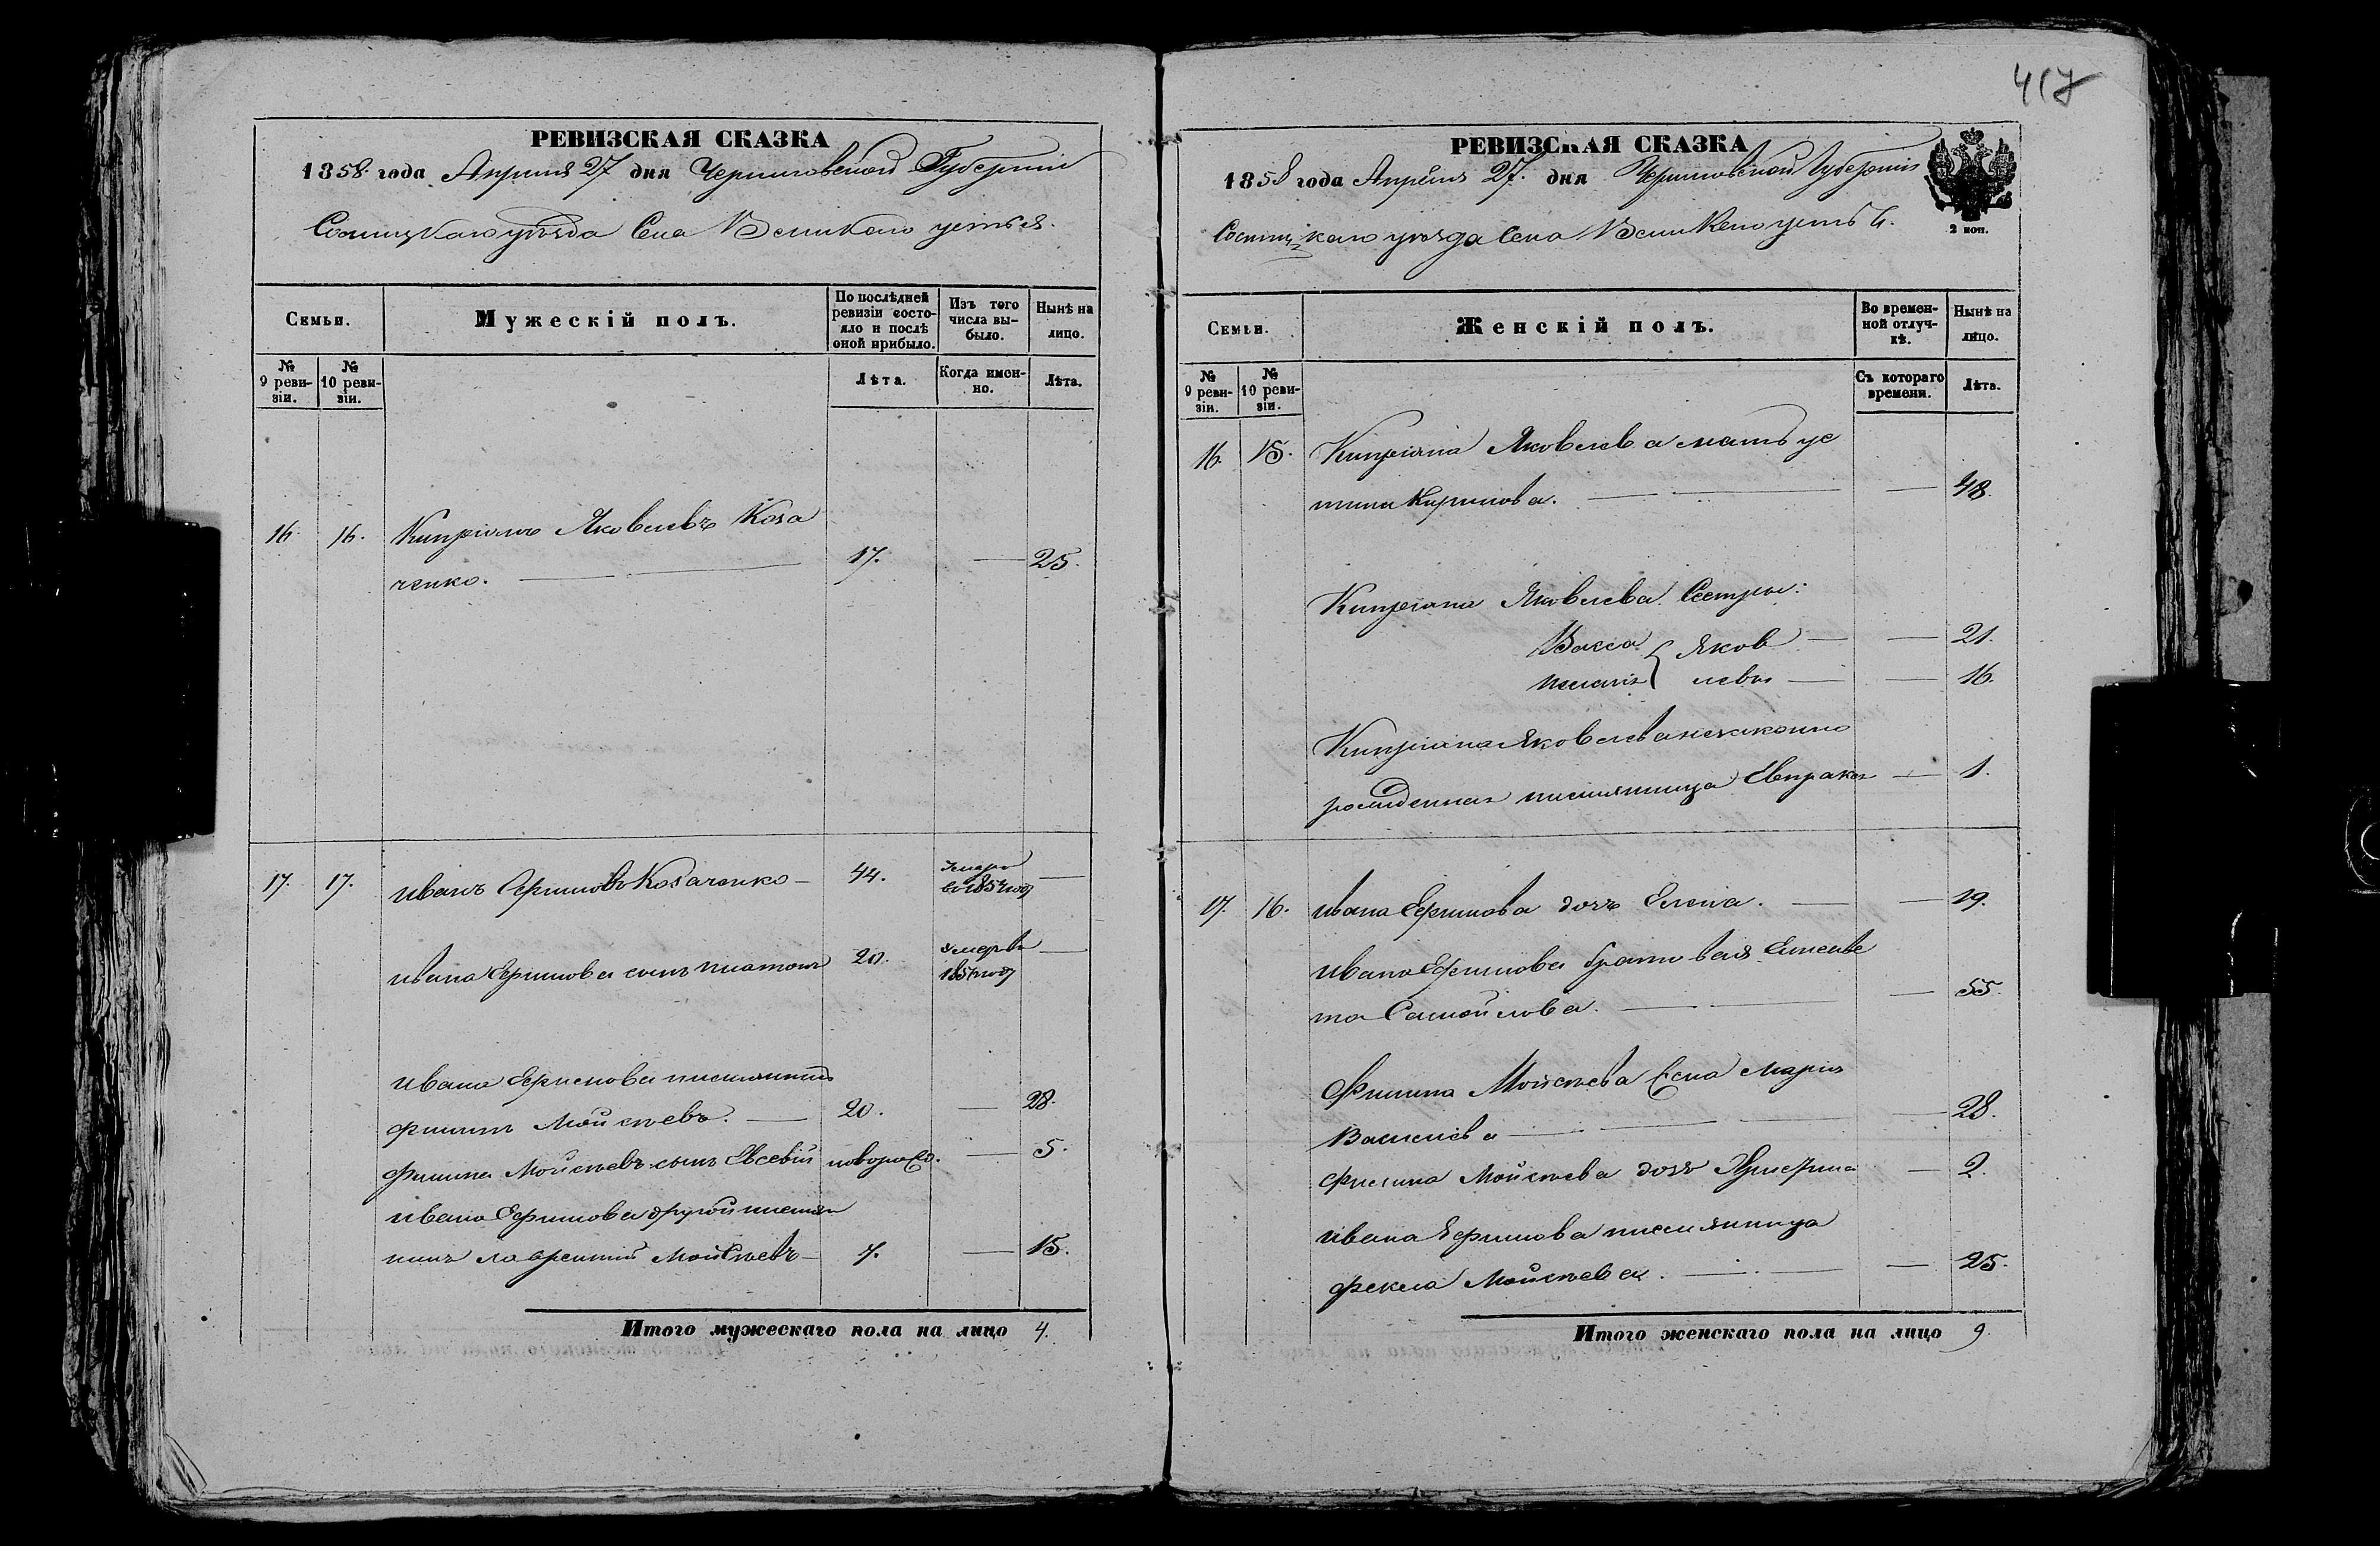 417
РЕВИЗСКАЯ СКАЗКА
1858 года Апреля 27 дня Черниговской Губерніи
Сосницкаго уѣзда Села Великаго устья.
Семьи.
Мужескій полъ.
По послѣдней ревизіи состояло и послѣ оной прибыло.
Изъ того числа выбыло.
Нынѣ на лицо.
№ 9 ревизіи.
№ 10 ревизіи.
Лѣта.
Когда именно.
Лѣта.
16. 16. Кипріянъ Яковлевъ Коза
ченко. 17. 25.
17. 17. Иванъ Ефимовъ Козаченко 44. умеръ
Ивана Ефимова сынъ Платонъ 20. умеръ въ
Ивана Ефимова племянникъ
Филипъ Мойсѣевъ. 20. 28.
Филипа Мойсѣева сынъ Евсевій новорожд. 5.
Ивана Ефимова другой племян
никъ Лаврентий Мойсѣевъ 7. 15.
Итого мужескаго пола на лицо 4.
РЕВИЗСКАЯ СКАЗКА
1858 года Апреля 27. дня Черниговской Губерніи
Сосницкаго уѣзда Села Великаго устья.
2 коп.
Семьи.
Женскій полъ.
Во временной отлучкѣ.
Нынѣ на лицо.
№ 9 ревизіи.
№ 10 ревизіи.
Съ котораго времени.
Лѣта.
16. 15. Кипріяна Яковлева мать Ус
тина Кирилова. 48.
Кипріяна Яковлева Сестры:
Васса { Яков 21.
Пелагія левы 16.
Кипріяна Яковлева незаконно
рожденная племянница Евпракія 1.
17. 16. Ивана Ефимова дочь Елена. 19.
Ивана Ефимова братовая Елисаве
та Самойлова. 55.
Филипа Мойсѣева жена Марія
Васильева 28.
Филипа Мойсѣева дочь 2.
Ивана Ефимова племянница
Фекла Мойсѣева. 25.
Итого женскаго пола на лицо 9.